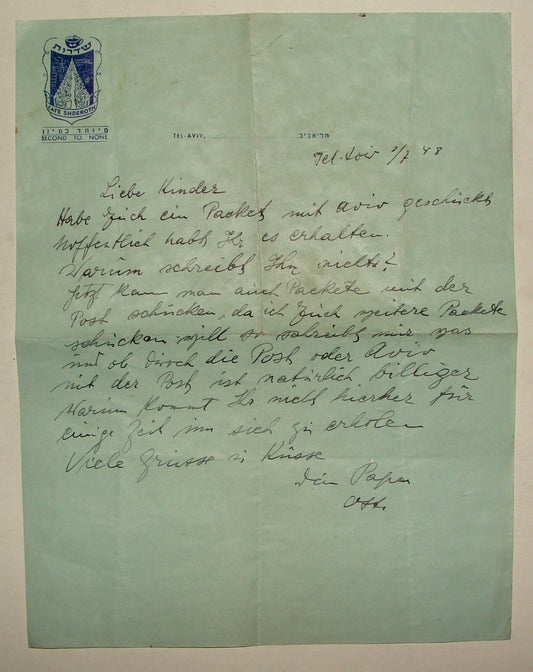 שדרות
CAFE SHDEROTH
מיוחד במינו
SECOND TO NONE
TEL-AVIV, תל-אביב,
Tel-Aviv 2/7 48
Liebe Kinder
Habe Euch ein Packet mit Aviv geschickt
hoffentlich habt Ihr es erhalten.
Warum schreibt Ihr nichts?
Jetzt kann man auch Packete mit der
Post schicken, da ich Euch weitere Packete
schicken will so schreibt mir was
und ob durch die Post oder Aviv
mit der Post ist natürlich billiger
Warum kommt Ihr nicht hierher für
einige Zeit um sich zu erholen
Viele Grüsse u Küsse
Papa